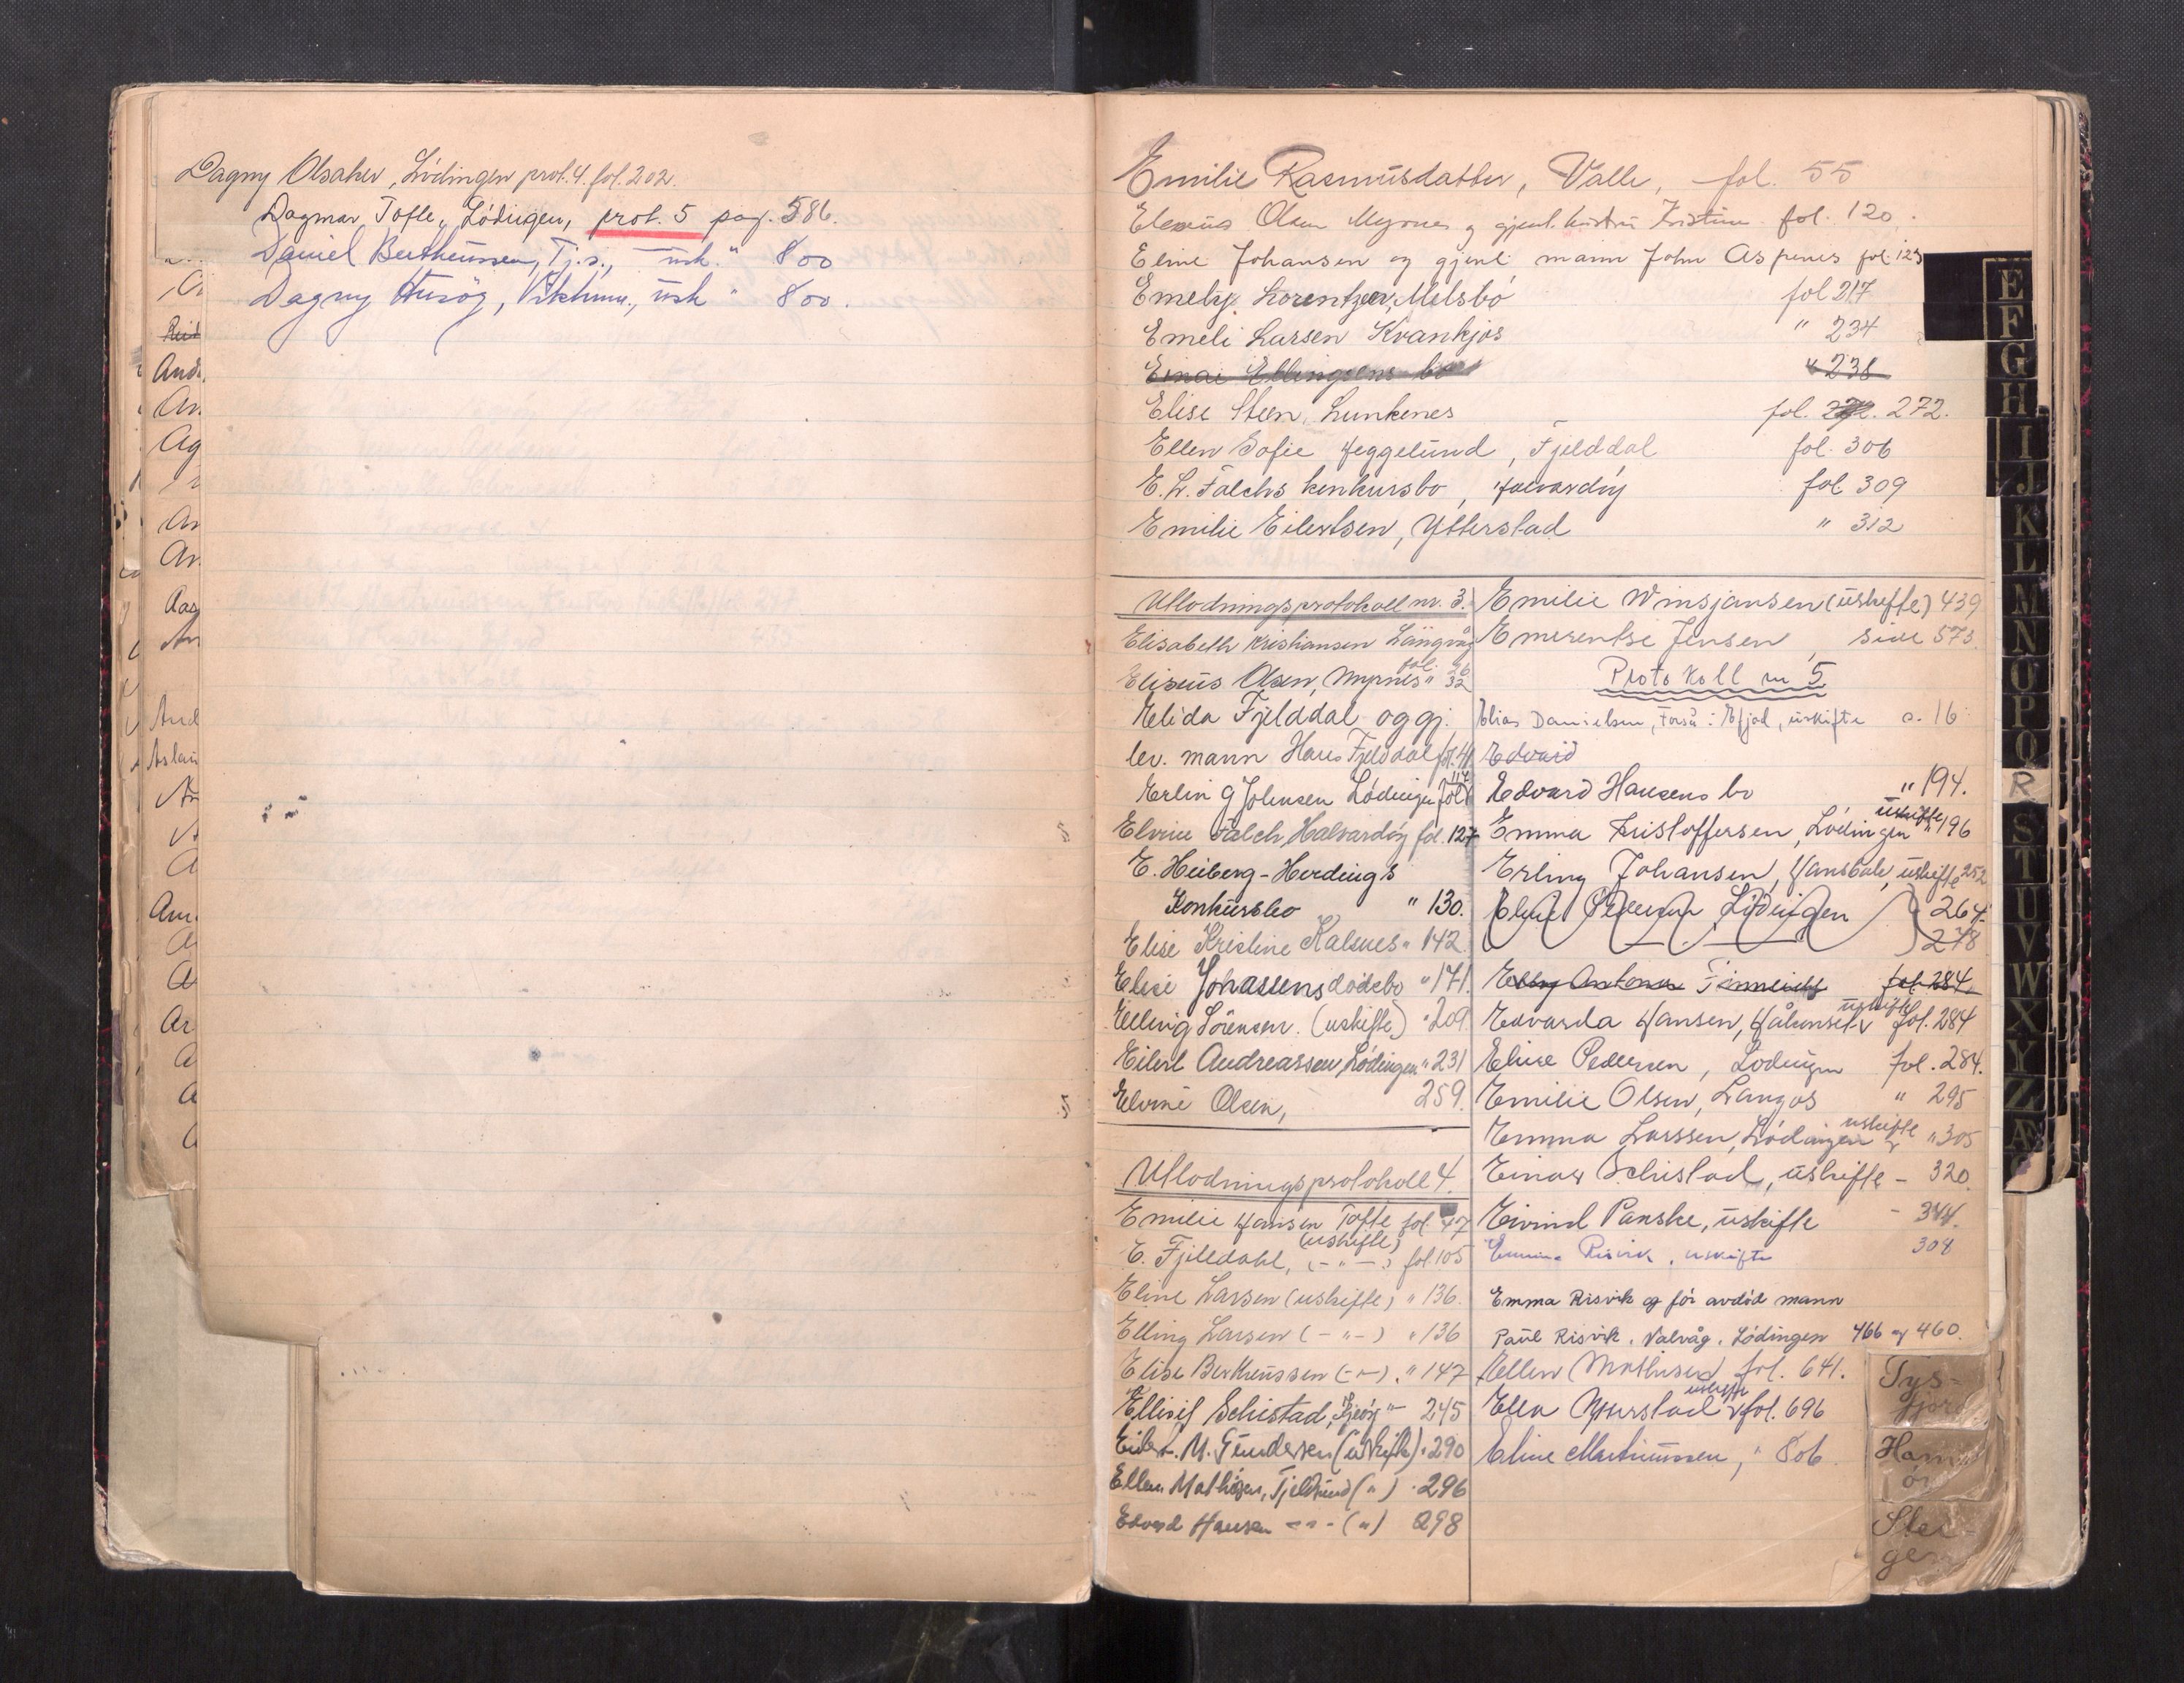 Dagny Olsaker, Lödingen prot. 4. fol. 202.
Dagmar Tofte, Lödingen, prot. 5 pag. 586.
Daniel Bertheussen, Tj.s., usk. " 800
Dagny Husög, usk " 800.
Reid
And.
An.
Ag
An
An
Aag
An
And
Aslau
An
A
Am.
A
A
Ar
A
A
Emilie Rasmusdatter, Valle, fol. 55
Olsen Myrnes og gjenl. hustru Kristine fol. 120.
Eline Johansen og gjenl. mann John Aspenes fol. 123
Emely Lorentzen, Melsbö fol 217
Emeli Larsen Kvankjos " 234
Einar Ellingsens bo " 238
Elise Steen, Lunkenes fol. 272.
Ellen Sofie Heggelund, Fjelddal fol. 306
E. L. Falchs konkursbo, Halvardöy fol. 309
Emilie Eilertsen, Ytterstad " 312
Utlodningsprotokoll nr. 3.
Elisabeth Kristiansen Langvåg fol. 26
Eliseus Olsen, Myrnes " 32
Elida Fjelddal og gj.
lev. mann Hans Fjelddal fol. 41
Erlin G Johnsen Lödingen fol 114
Elvine Falch Halvardöy fol. 127
E. Heiberg-Herdings
Konkursbo " 130.
Elise Kristine Kalsnes " 142
Elise Johassens dödsbo " 171.
Elling Sörensen. (uskifte) " 209.
Eilert Andreassen Lödingen " 231
Elvine Olsen, 259.
Utlodningsprotokoll 4.
Emilie Hansen Tofte fol. 47
(uskifte)
E. Fjelldahl, (- " -) fol 105
Eline Larsen (uskifte) " 136.
Elling Larsen (- " -) " 136
Elise Bertheussen (- " -). " 147
Ellisif Schistad, " 245
Eilert. M. Gundersen (uskifte) . 290
Ellen Mathisen, Tjeldsund (") . 296
Edvard Hansen - " - (") 298
Emilie Winsjansen (uskifte) 439
Emerentse Jensen, side 573.
Protokoll nr 5
Elias Danielsen, Forså i Efjord, uskifte s. 16
Edvard
Edvard Hansens bo " 194.
Emma Kristoffersen, Lödingen uskifte " 196
Erling Johansen, Hansbak, uskifte 252
Eline Pedersen Lödingen 264.
278
Antona fol. 284.
Edvarda Hansen, uskifte fol. 284
Elise Pedersen, Lödingen fol. 284.
Emilie Olsen, Langos " 295
Emma Larssen, Lödingen uskifte " 305
Einar Schistad, uskifte - 320.
Eivind Panske, uskifte - 344.
Emma Risvik, uskifte 308
Emma Risvik og för avdöd mann
Paul Risvik. Valvåg. Lödingen 466 og 460.
Ellen Mathisen fol. 641.
Ella uskifte fol. 696
Eline Martinussen, " 806.
E
F
G
H
I
J
K
L
M
N
O
P
Q
R
S
T
U
V
W
X
Y
Z
Æ
Tys-
fjord
Ham-
ör
Stei-
gen